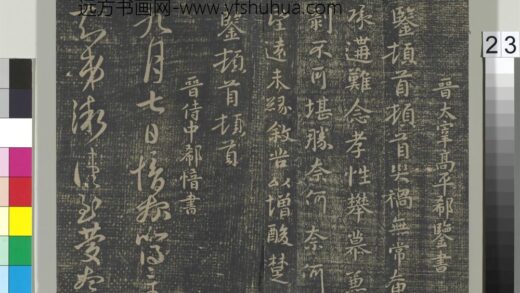 远方书画网-www.yfshuhua.com
23
晋太宰高平郗鑒書
鑒頓首頓首災禍無常奄
承遘難念孝性攀慕兼
剝不可堪勝奈何奈何
望遠未緣敘苦以增酸楚
鑒頓首頓首
晋侍中郗愔書
九月七日愔報